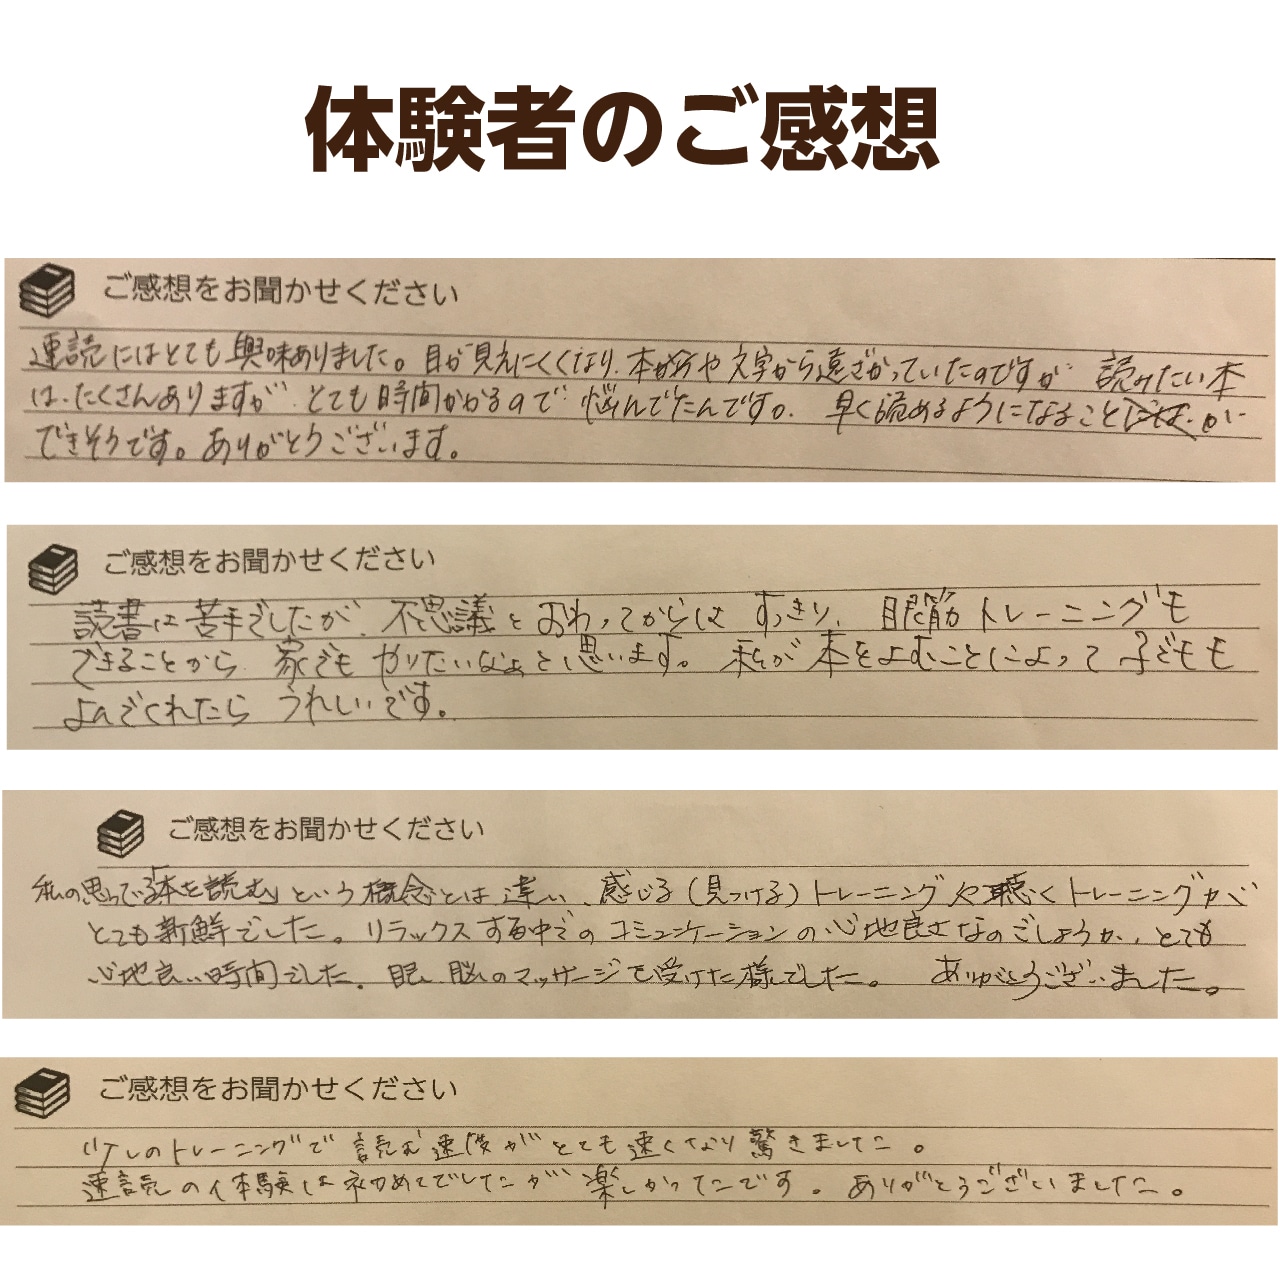 体験者のご感想
ご感想をお聞かせください
速読にはとても興味ありました。目が見えにくくなり、本や文字から遠ざかっていたのですが 読みたい本
は、たくさんありますが、とても時間かかるので 悩んでたんです。早く読めるようになることが
できそうです。ありがとうございます。
ご感想をお聞かせください
読書は苦手でしたが、不思議とおわってからはすっきり、眼筋トレーニングも
できることから、家でもやりたいなぁと思います。私が本をよむことによって子どもも
よんでくれたらうれしいです。
ご感想をお聞かせください
私の思っている「本を読む」という概念とは違い、感じる(見つける)トレーニングや聴くトレーニングが
とても新鮮でした。リラックスする中でのコミュニケーションの心地良さなのでしょうか、とても
心地良い時間でした。眼、脳のマッサージを受けた様でした。 ありがとうございました。
ご感想をお聞かせください
少しのトレーニングで読む速度がとても速くなり驚きました。
速読の体験は初めてでしたが楽しかったです。ありがとうございました。